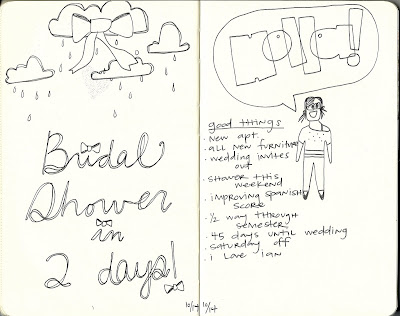 Bridal
Shower
in
2 days!
10/14
holla!
good things
· new apt.
· all new furniture
· wedding invites
out
· shower this
weekend
· improving spanish
score
· 1/2 way through
semester
· 45 days until wedding
· saturday off
· i love ian
10/14